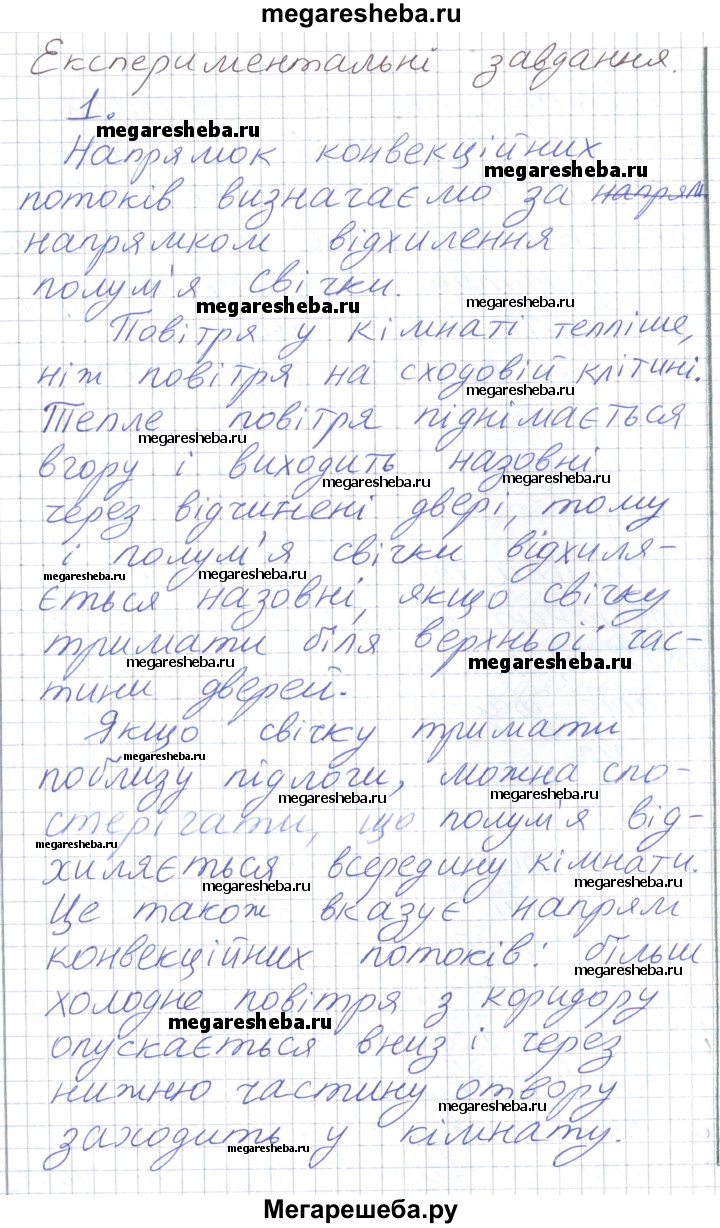 megaresheba.ru
Експериментальні завдання.
1.
megaresheba.ru
Напрямок конвекційних
megaresheba.ru
потоків визначаємо за напрям
напрямком відхилення
полум'я свічки.
megaresheba.ru megaresheba.ru
Повітря у кімнаті тепліше,
ніж повітря на сходовій клітині.
megaresheba.ru
Тепле повітря піднімається
megaresheba.ru
вгору і виходить назовні
megaresheba.ru megaresheba.ru
через відчинені двері, тому
і полум'я свічки відхиля-
megaresheba.ru megaresheba.ru
ється назовні, якщо свічку
тримати біля верхньої час-
megaresheba.ru megaresheba.ru
тини дверей.
Якщо свічку тримати
megaresheba.ru
поблизу підлоги, можна спо-
megaresheba.ru megaresheba.ru
стерігати, що полум'я від-
megaresheba.ru
хиляється всередину кімнати.
megaresheba.ru megaresheba.ru
Це також вказує напрям
конвекційних потоків: більш
megaresheba.ru
холодне повітря з коридору
megaresheba.ru
опускається вниз і через
нижню частину отвору
megaresheba.ru
заходить у кімнату.
megaresheba.ru
Мегарешеба.ру